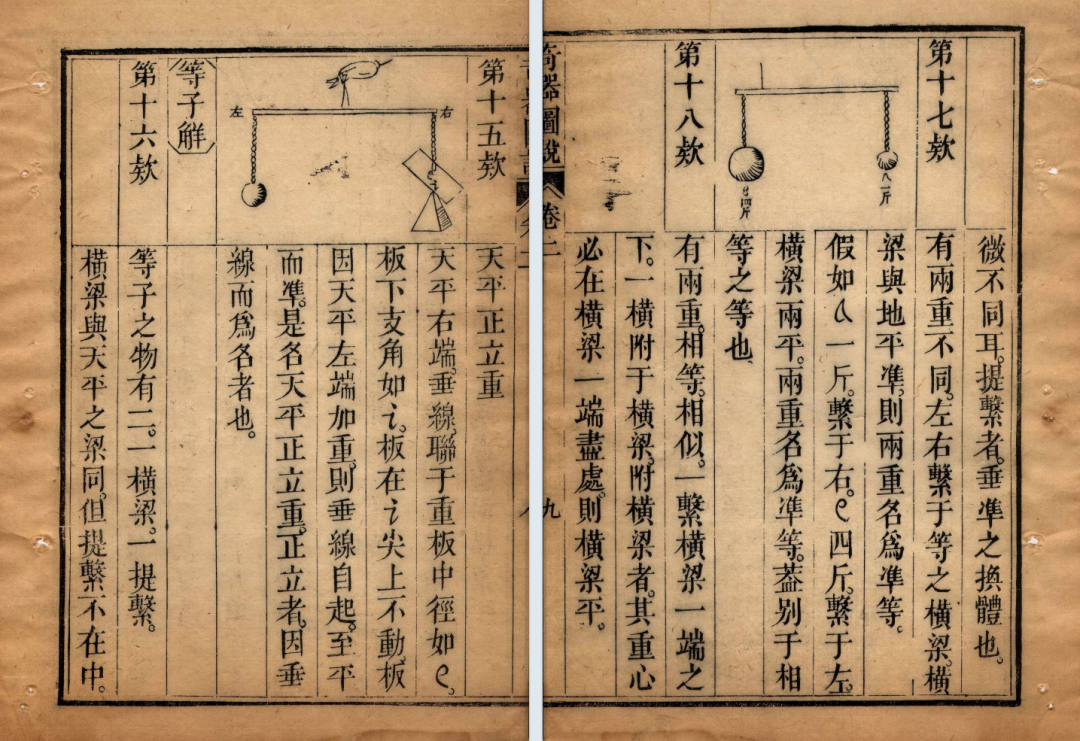 第十五欵
左
右
天平正立重
天平右端。垂線聯于重板中徑如ℓ。
板下支角如i。板在i尖上不動。板
因天平左端加重。則垂線自起。至平
而準。是名天平正立重。正立者。因垂
線而爲名者也。
等子解
第十六欵
等子之物有二。一橫梁。一提繫。
橫梁與天平之梁同。但提繫不在中。
微不同耳。提繫者。垂準之換體也。
第十七欵
一斤
四斤
有兩重不同。左右繫于等之橫梁。橫
梁與地平準。則兩重名爲準等。
假如a一斤。繫于右。ℓ四斤。繫于左。
橫梁兩平。兩重名爲準等。葢别于相
等之等也。
第十八欵
有兩重。相等。相似。一繫橫梁一端之
下。一橫附于橫梁。附橫梁者。其重心
必在橫梁一端盡處。則橫梁平。
奇器圖說
卷二
九